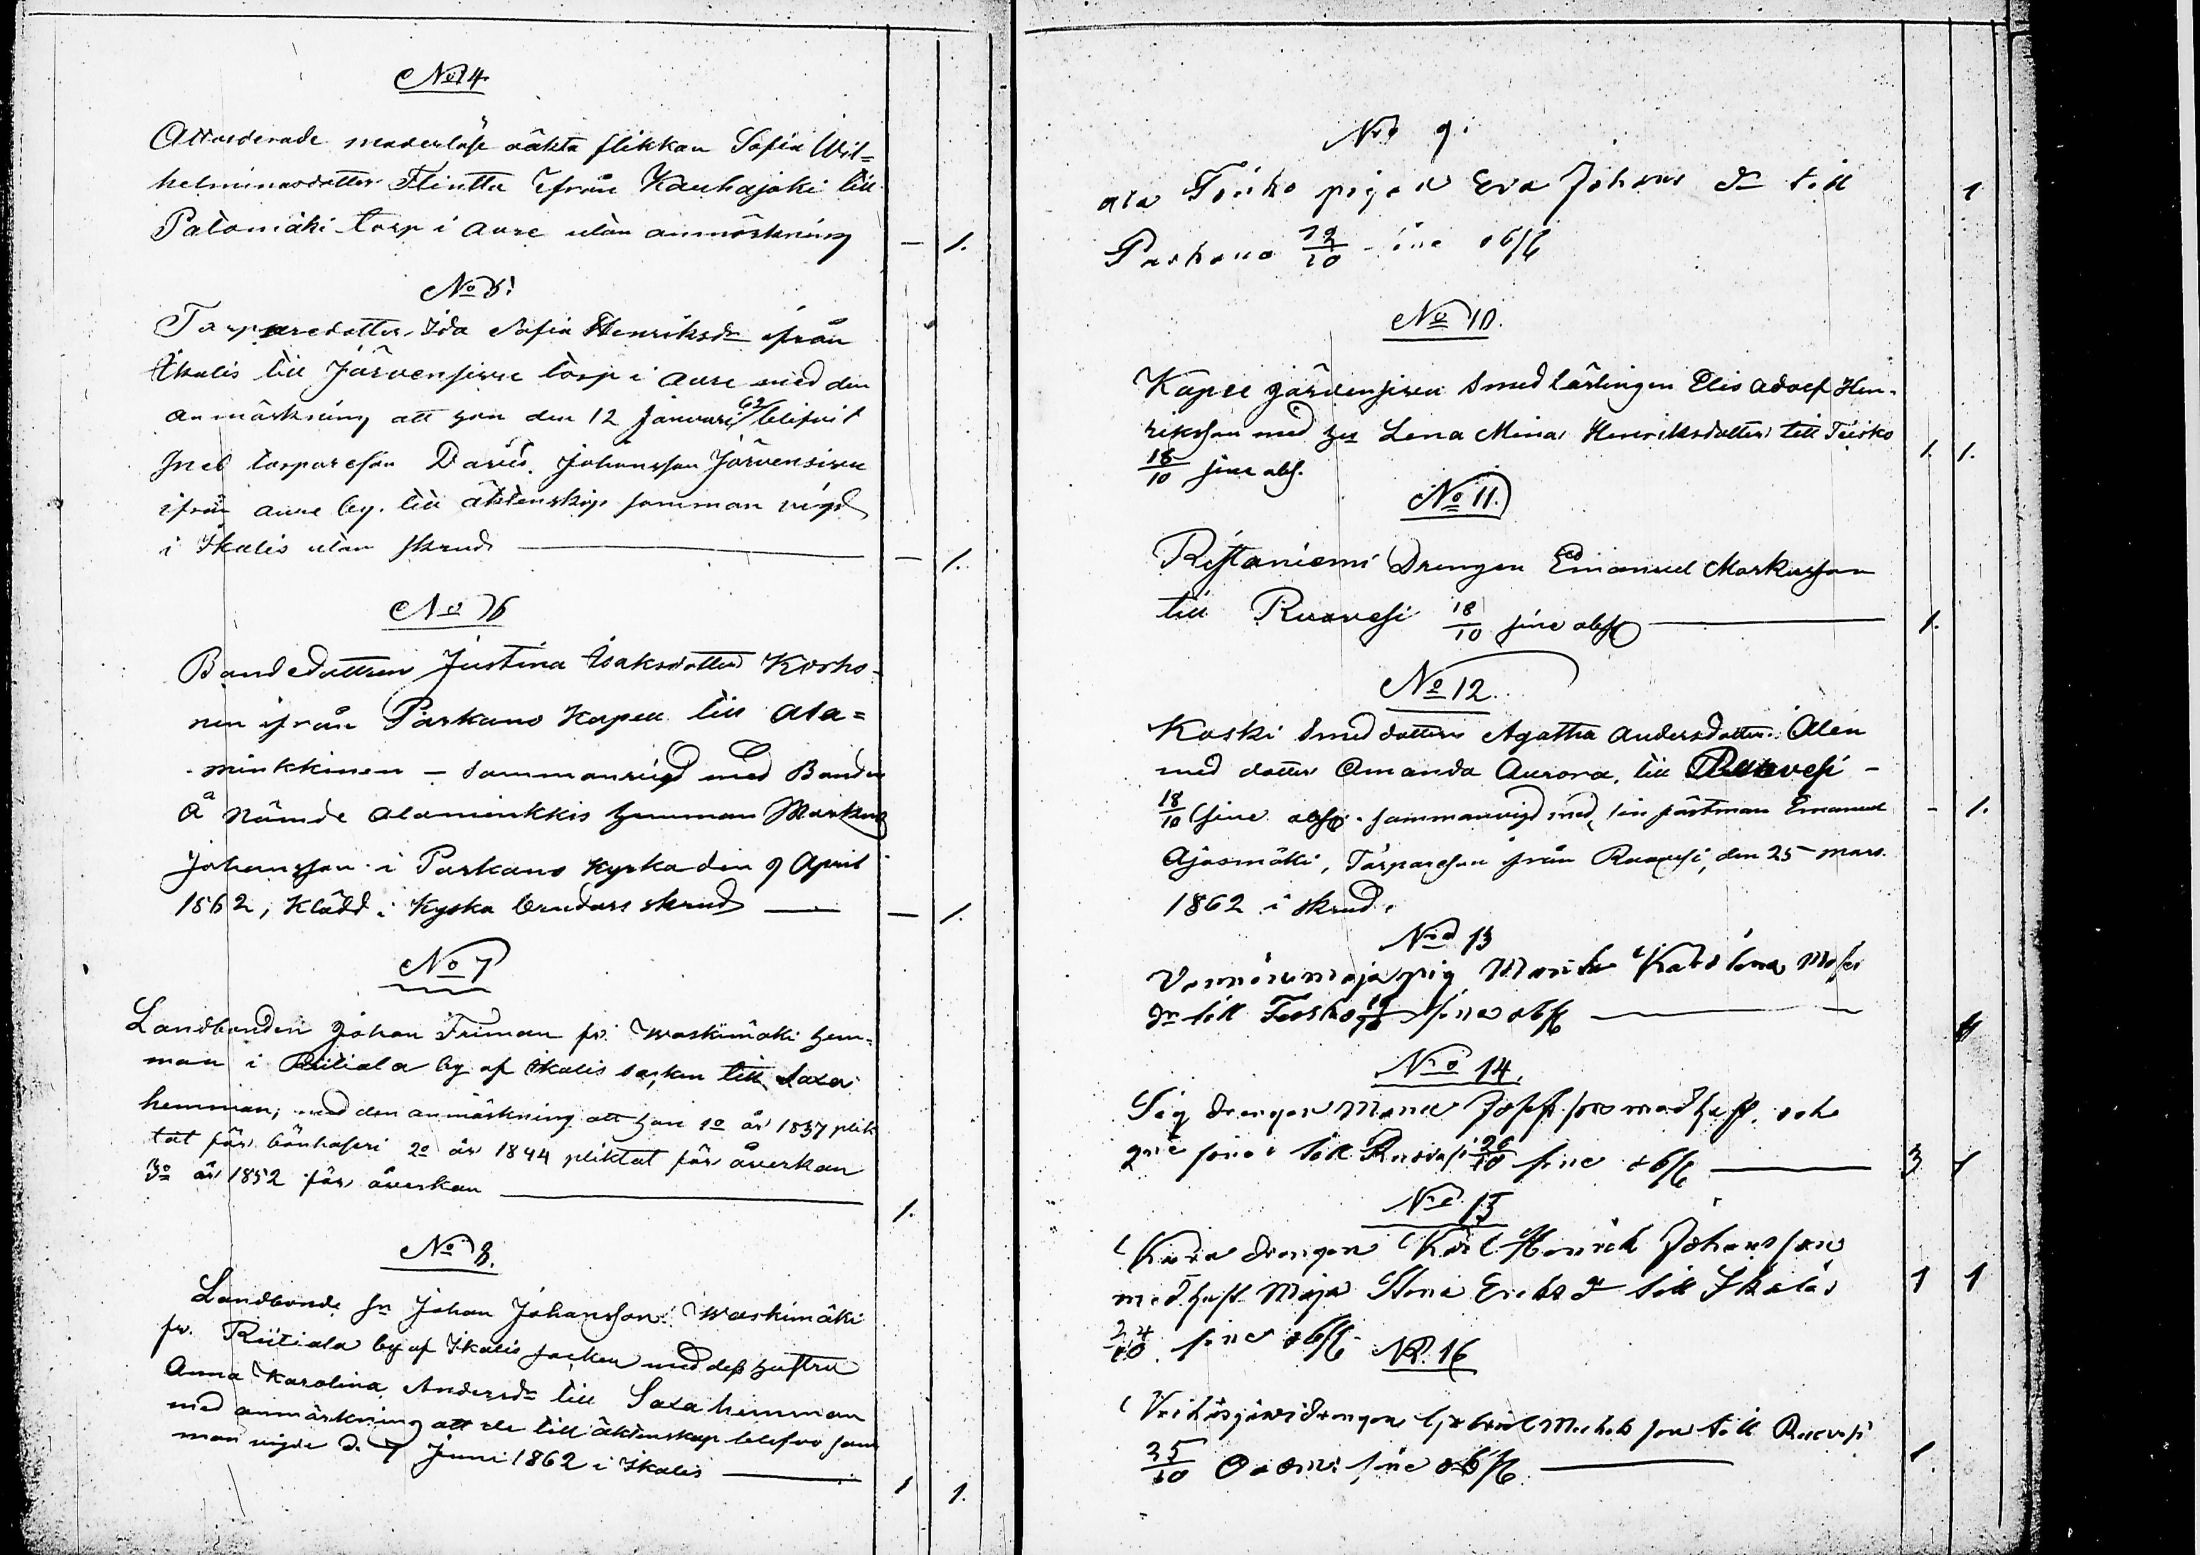 No 4
Attesterade moderlöse oäkta flikkan Sofia Wil=
helminasdotter Flintta ifrån Kauhajoki till
Palomäki torp i Aure utan anmärkning — 1.
No 5:
Torparedotter Ida Sofia Henriksdr ifrån
Ikalis till Järvensivu torp i Aure med den
anmärkning att hon den 12 Januari 62 blifvit
med torpareson David Johansson Järvensivu
ifrån Aure by. till äktenskap samman vigd
i Ikalis utan skrud — — 1.
No 6
Bondedottren Justina Isaksdotter Korho-
nen ifrån Parkano Kapell till Ala=
minkkinen – Sammanvigd med Bonden
å nämde Alaminkkis hemman Markus
Johansson i Parkano Kyrka den 9 April
1862, Klädd i Kyrko brudars skrud — — 1.
No 7
Landbonden Johan Friman fr. Waskimäki hem-
man i Riitiala by af Ikalis socken till Saxa
hemman, med den anmärkning att han 1o år 1837 plik
tat för bönhaseri 2o år 1844 pliktat för åverkan
3o år 1852 för åverkan — 1.
No 8.
Landbonde sn Johan Johansson Waskimäki
fr. Riitiala by af Ikalis socken med dess hustru
Anna Karolina Andersdr till Saxa hemman
med anmärkning att de till äktenskap blefvo sam
man vigde d. 7 Juni 1862 i Ikalis — 1 1.
No 9.
Ala pigan Eva Johans dr till 1
Parkano 19/10 sine obs
No 10.
Kapee Järvensivu Smedlärlingen Elis Adolf Hen-
riksson med hu Lena Mina Henriksdotter till Teisko 1. 1.
18/10 sine obs.
No 11.
Ristaniemi Drengen Emanuel Markusson
till Ruovesi 18/10 sine obs — 1.
No 12.
Koski Smed dotter Agatha Andersdotter Alen
med dotter Amanda Aurora, till Ruovesi –
18/10 sine obs. sammanvigd med sin fästman Emanuel – 1.
Ajosmäki, Torpareson från Ruovesi, den 25 mars
1862 i skrud.
No 13
pig Maria Karolina Moses
dr till Teisko sine obs — 1
No 14.
Sig drengen Josefsson med hust. och
sine till Ruovesi 26/10 sine obs — 3 1
No 15
Kura drengen Karl Henrik Johansson
med hust Maja Stina Ericks dr till Ikalis 1 1
24/10 sine obs
No 16
drengen Michels son till Ruovesi
25/10 sine obs — 1